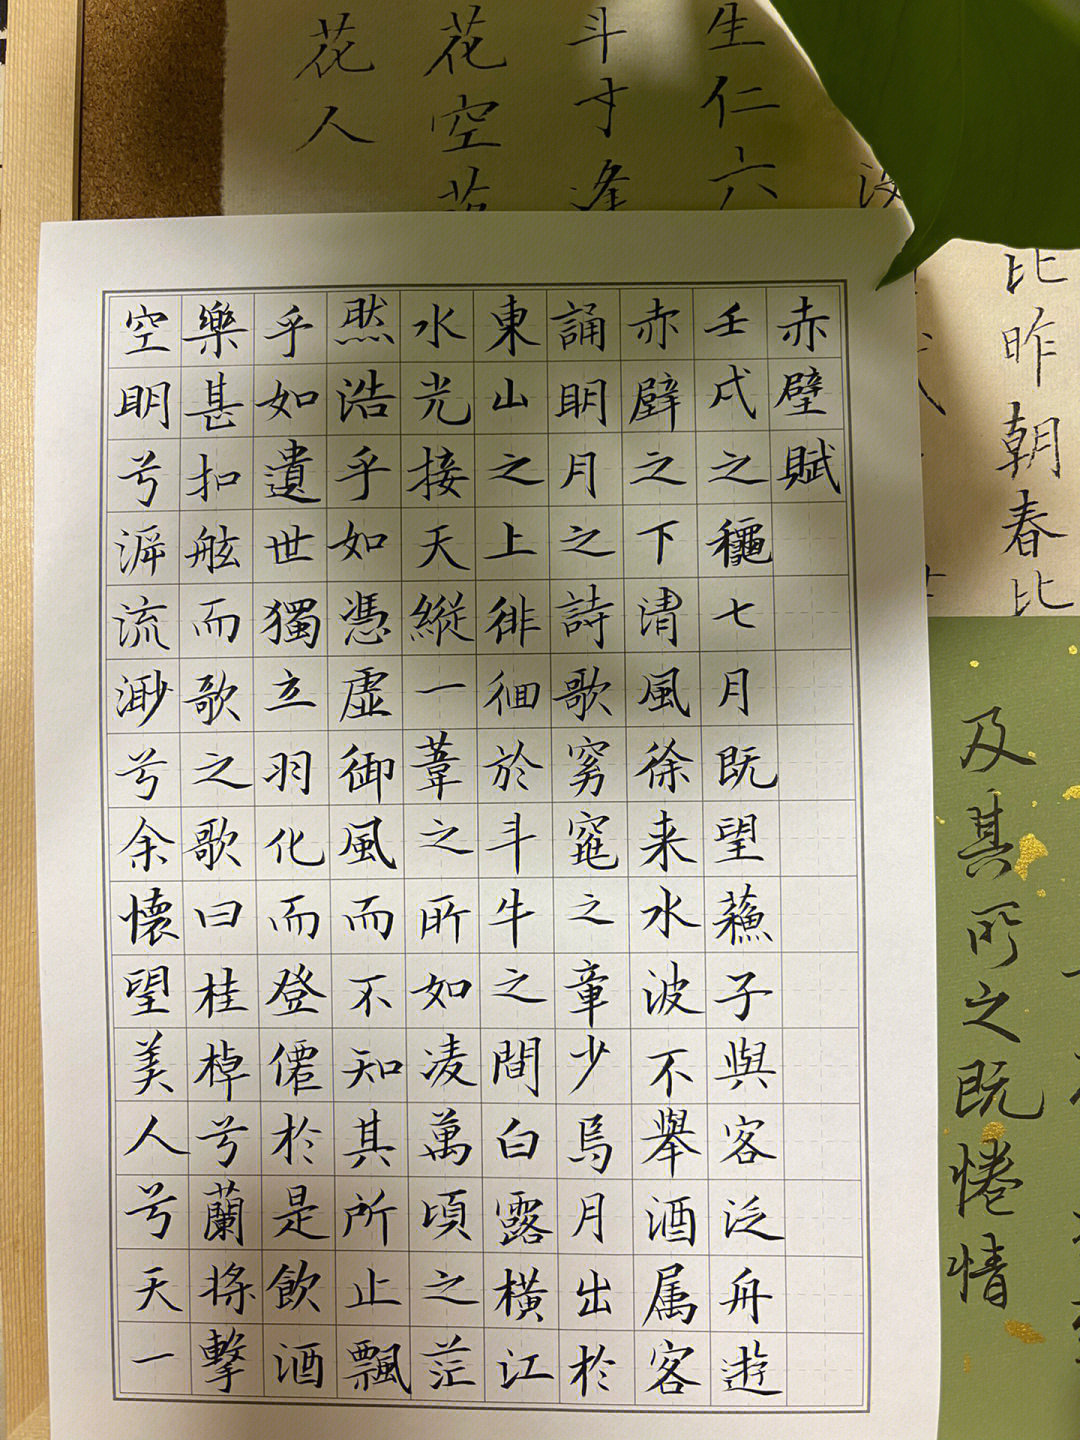 赤壁賦
壬戌之穐七月既望蘓子與客泛舟遊
赤壁之下清風徐来水波不舉酒属客
誦明月之詩歌窈窕之章少焉月出於
東山之上徘徊於斗牛之間白露橫江
水光接天縱一葦之所如凌萬頃之茫
然浩乎如憑虛御風而不知其所止飄
乎如遺世獨立羽化而登僊於是飲酒
樂甚扣舷而歌之歌曰桂棹兮蘭槳擊
空明兮泝流渺兮余懷望美人兮天一
比昨朝春比
生仁六
斗寸逢
花空落
花人
及其所之既惓情